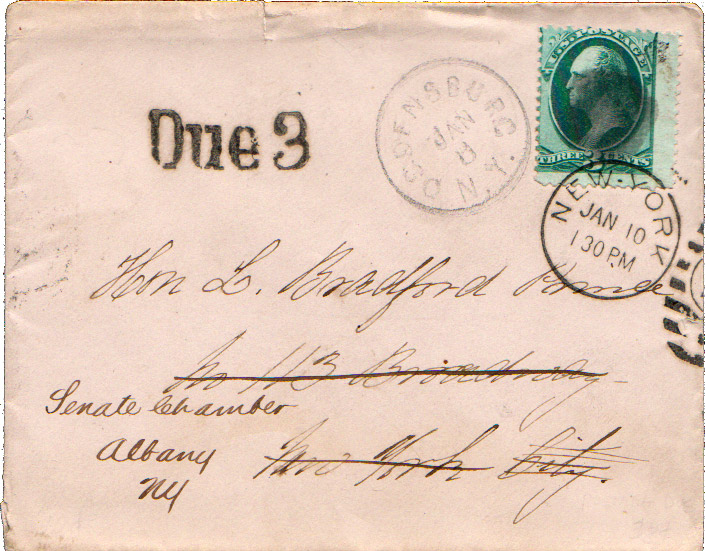 U.S. POSTAGE
THREE 3 CENTS
OGDENSBURG
JAN
8
N.Y.
Due 3
NEW-YORK
JAN 10
1 30 PM
Hon L. Bradford Prince
No 113 Broadway
New York City.
Senate Chamber
Albany
NY